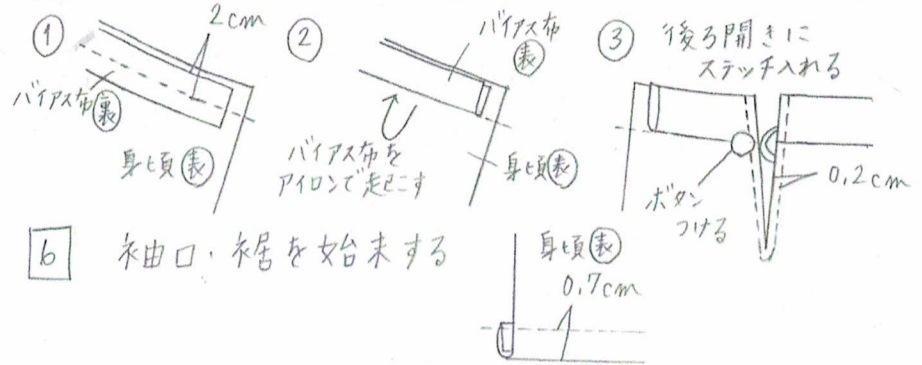 ① 2cm
バイアス布 裏
身頃 表
② バイアス布
表
バイアス布を
アイロンで起こす
身頃 表
③ 後ろ開きに
ステッチ入れる
ボタン
つける
0.2cm
6 袖口・裾を始末する
身頃 表
0.7cm